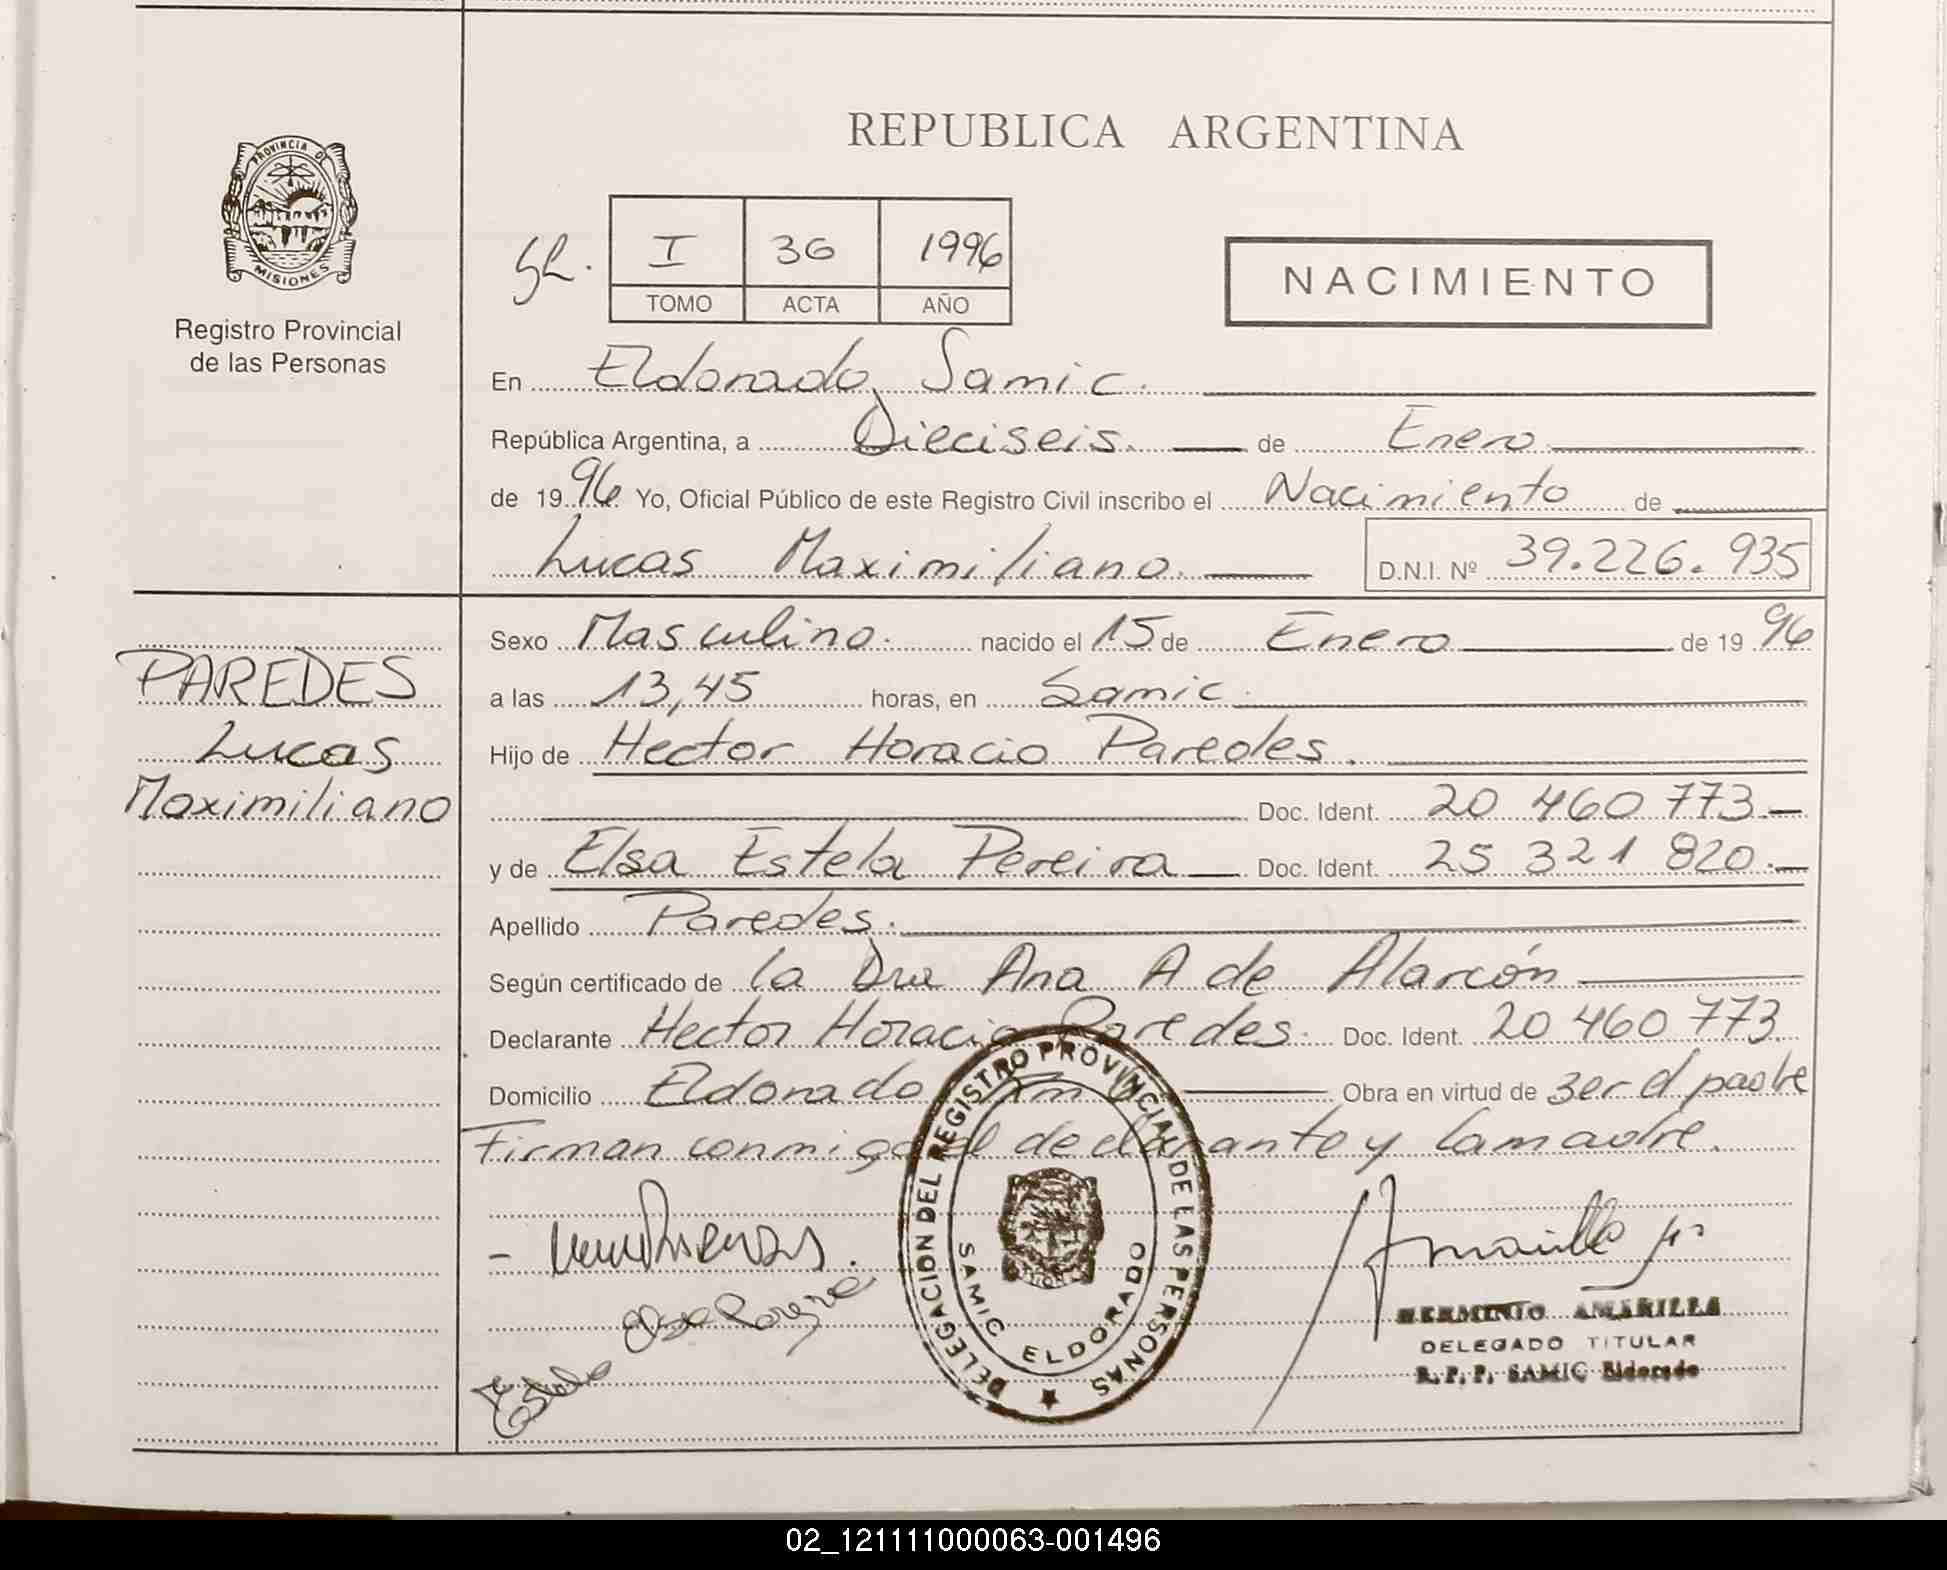 REPUBLICA ARGENTINA
PROVINCIA DE
MISIONES
Registro Provincial
de las Personas
I 36 1996
TOMO ACTA AÑO
NACIMIENTO
En Eldorado, Samic.
República Argentina, a Dieciseis. de Enero.
de 1996. Yo, Oficial Público de este Registro Civil inscribo el Nacimiento de
Lucas Maximiliano. D.N.I. Nº 39.226.935
PAREDES
Lucas
Maximiliano
Sexo Masculino. nacido el 15 de Enero de 1996
a las 13,45 horas, en Samic.
Hijo de Hector Horacio Paredes.
Doc. Ident. 20 460 773.
y de Elsa Estela Pereira Doc. Ident. 25 321 820.
Apellido Paredes.
Según certificado de la Dra Ana A de Alarcón
Declarante Hector Horacio Paredes. Doc. Ident. 20 460 773
Domicilio Eldorado Km Obra en virtud de ser el padre
Firman conmigo el declarante y la madre.
DELEGACION DEL REGISTRO PROVINCIAL DE LAS PERSONAS
SAMIC ELDORADO
HERMINIO AMARILLA
DELEGADO TITULAR
R. P. P. SAMIC Eldorado
02_121111000063-001496